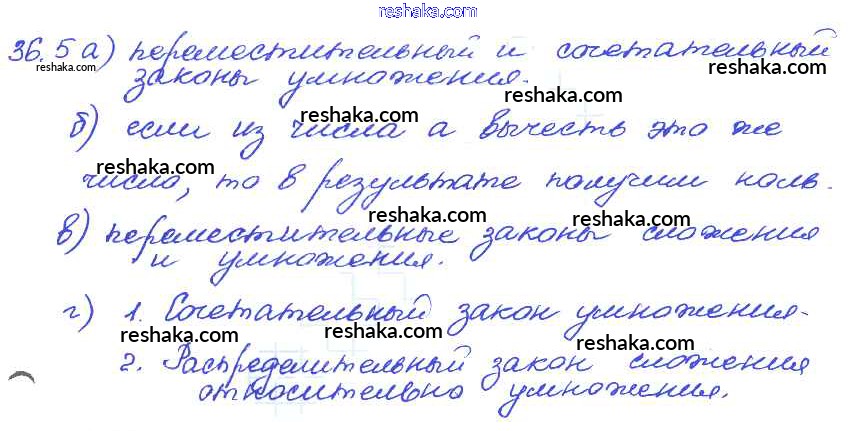 reshaka.com
36.5 а) переместительный и сочетательный
reshaka.com reshaka.com
законы умножения.
reshaka.com reshaka.com
б) если из числа а вычесть это же
reshaka.com reshaka.com
число, то в результате получим ноль.
reshaka.com reshaka.com
в) переместительные законы сложения
и умножения.
reshaka.com
г) 1. Сочетательный закон умножения.
reshaka.com reshaka.com
2. Распределительный закон сложения
reshaka.com reshaka.com
относительно умножения.